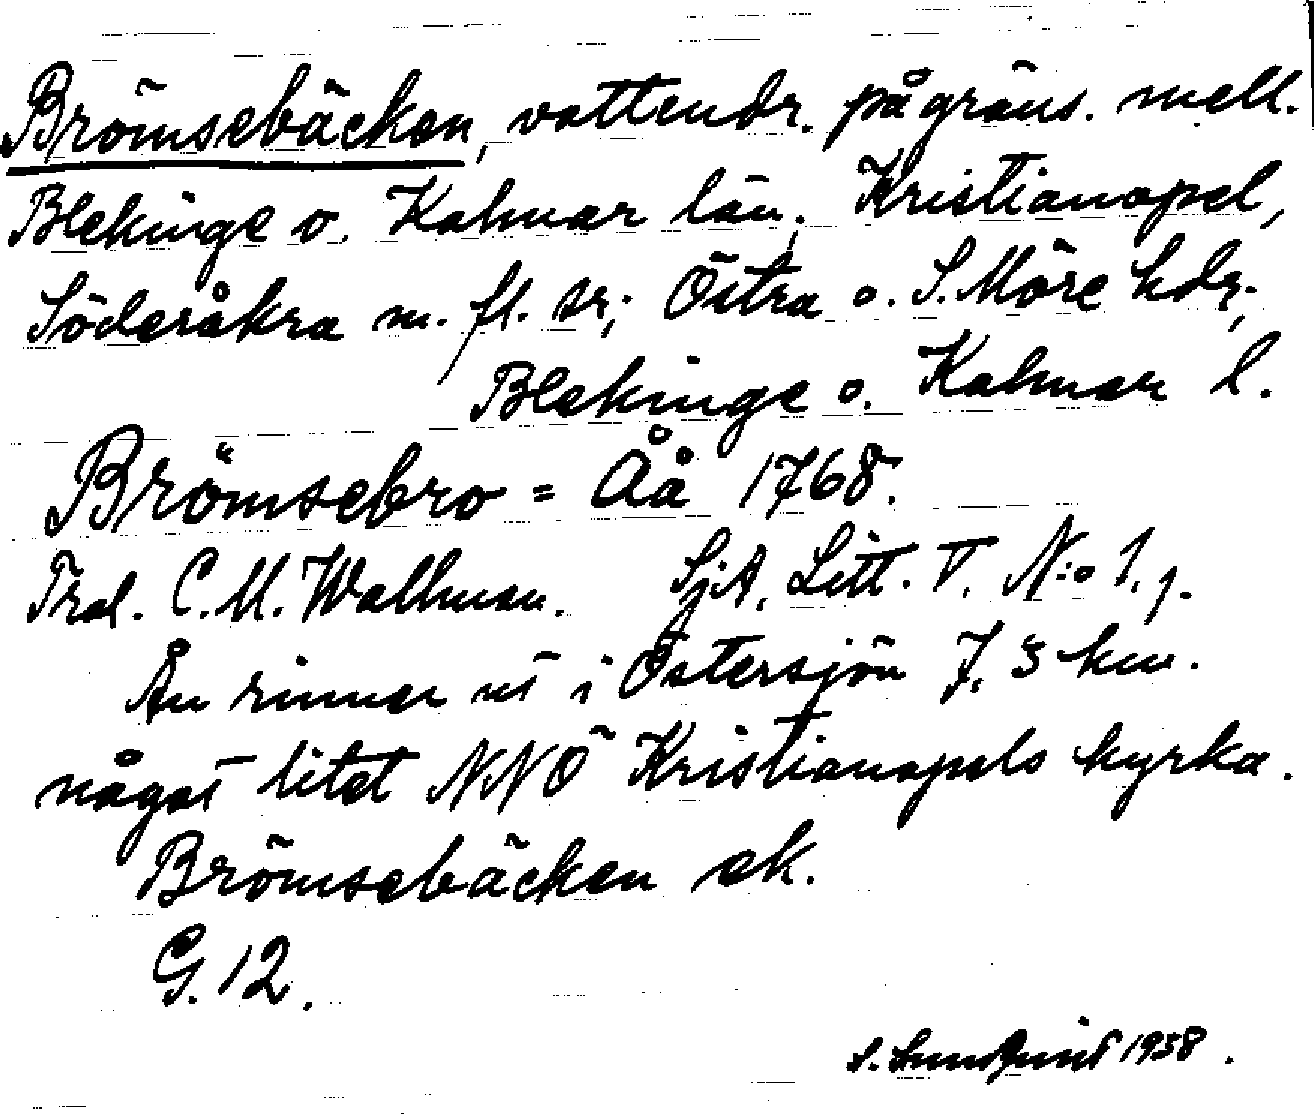 Brömsebäcken, vattendr. på gräns. mell.
Blekinge o. Kalmar län. Kristianopel,
Söderåkra m. fl. sr; Östra o. S. Möre hdr,
Blekinge o. Kalmar l.
Brömsebro = Åå 1768.
C. M. Wallman. SjA. Litt. V. N:o 1.
Ån rinner ut i Östersjön 7,3 km.
något litet NNÖ Kristianopels kyrka.
Brömsebäcken ek.
G. 12.
S. Sundqvist 1938.